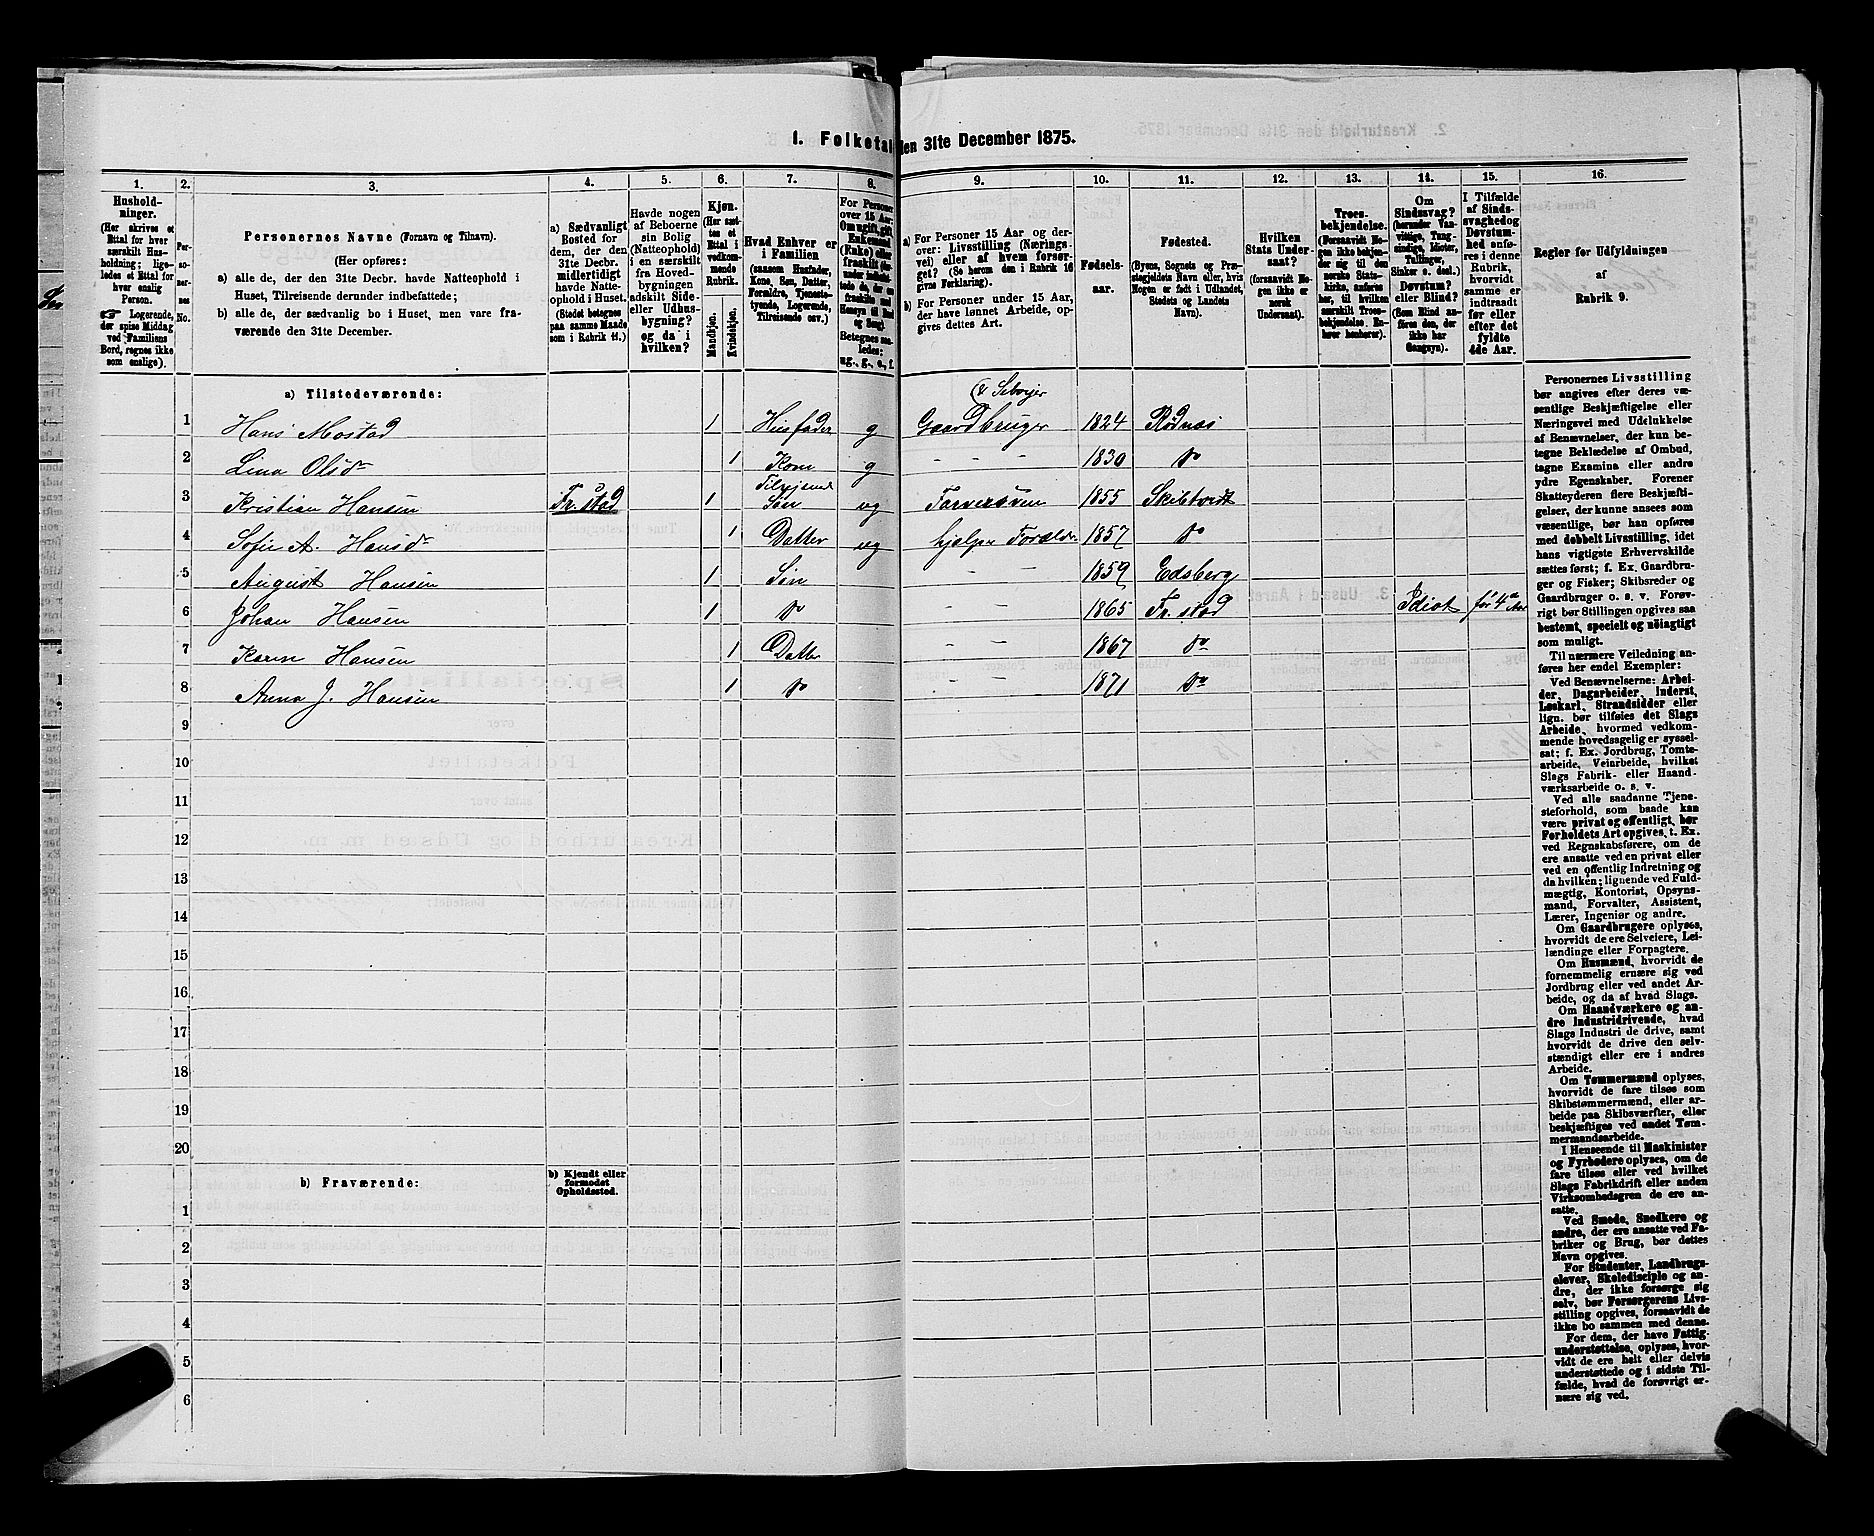 1. Folketal den 31te December 1875.
1. 2. 3. 4. 5. 6. 7. 8. 9. 10. 11. 12. 13. 14. 15. 16.
Hushold-
ninger.
(Her skrives et
Ettal for hver
særskilt Hus-
holdning; lige-
ledes et Ettal for
hver enslig
Person.
☞ Logerende,
der spise Middag
ved Familiens
Bord, regnes ikke
som enslige).
Per-
so-
ner-
nes
No.
Personernes Navne (Fornavn og Tilnavn).
(Her opføres:
a) alle de, der den 31te Decbr. havde Natteophold i
Huset, Tilreisende derunder indbefattede;
b) alle de, der sædvanlig bo i Huset, men vare fra-
værende den 31te December.
a) Sædvanligt
Bosted for
dem, der den
31te Decbr.
midlertidigt
havde Natte-
ophold i Huset.
(Stedet betegnes
paa samme Maade
som i Rubrik 11.)
Havde nogen
af Beboerne
sin Bolig
(Natteophold)
i en særskilt
fra Hoved-
bygningen
adskilt Side-
eller Udhus-
bygning?
og da i
hvilken?
Kjøn.
(Her sæt-
tes et
Ettal i
vedkom-
mende
Rubrik.
Mandkjøn.
Kvindekjøn.
Hvad Enhver er
i Familien
(saasom Husfader,
Kone, Søn, Datter,
Forældre, Tjeneste-
tyende, Logerende,
Tilreisende osv.)
For Personer
over 15 Aar:
Om ugift, gift,
Enkemand
(Enke) eller
fraskilt
Betegnes saa-
ledes:
ug., g., e., f.
a) For Personer 15 Aar og der-
over: Livsstilling (Nærings-
vei) eller af hvem forsør-
get? (Se herom den i Rubrik 16
givne Forklaring).
b) For Personer under 15 Aar,
der have lønnet Arbeide, op-
gives dettes Art.
Fødsels-
aar.
Fødested.
(Byens, Sognets og Præ-
stegjeldets Navn eller, hvis
Nogen er født i Udlandet,
Stedets og Landets
Navn).
Hvilken
Stats Under-
saat?
(forsaavidt No-
gen ikke er
norsk
Undersaat).
Troes-
bekjendelse.
(Forsaavidt No-
gen ikke bekjen-
der sig til den
norske Stats-
kirke, anføres
her, til hvilken
særskilt Troes-
bekjendelse. En-
hver henhører).
Om
Sindssvag?
(herunder Van-
vittige, Tung-
sindige, Idioter,
Tullinger,
Sinker o. desl.)
Døvstum?
eller Blind?
(Som Blind an-
føres den, der
ikke har
Gangsyn).
I Tilfælde
af Sinds-
svaghed og
Døvstum-
hed anfø-
res i denne
Rubrik,
hvorvidt
samme er
indtraadt
før eller
efter det
fyldte
4de Aar.
Regler for Udfyldningen
af
Rubrik 9.
a) Tilstedeværende:
& Selvejer
1 Hans Mostad 1 Husfader g Gaardbruger 1824 Rødnæs
2 Lina Olsdr 1 Kone g - - - 1830 do
Tilrejsende
3 Kristian Hansen Fr.stad 1 Søn ug Farversven 1855 Skibtvedt
4 Sofie A. Hansdr 1 Datter ug hjelpe Forældr. 1857 do
5 August Hansen 1 Søn - - 1859 Edsberg
6 Johan Hansen 1 do - - 1865 Fr.stad Idiot før 4de Aar
7 Karen Hansen 1 Datter - - 1867 do
8 Anna J. Hansen 1 do - - 1871 do
9
10
11
12
13
14
15
16
17
18
19
20
b) Fraværende:
b) Kjendt eller
formodet
Opholdssted.
1
2
3
4
5
6
Personernes Livsstilling
bør angives efter deres væ-
sentlige Beskjæftigelse eller
Næringsvei med Udelukkelse
af Benævnelser, der kun be-
tegne Beklædelse af Ombud,
tagne Examina eller andre
ydre Egenskaber. Forener
Skatteyderen flere Beskjæfti-
gelser, der kunne ansees som
væsentlige, bør han opføres
med dobbelt Livsstilling, idet
hans vigtigste Erhvervskilde
sættes først; f. Ex. Gaardbru-
ger og Fisker; Skibsreder og
Gaardbruger o. s. v. Forøv-
rigt bør Stillingen opgives saa
bestemt, specielt og nøiagtigt
som muligt.
Til nærmere Veiledning an-
føres her endel Exempler:
Ved Benævnelserne: Arbei-
der, Dagarbeider, Inderst,
Løskarl, Strandsidder eller
lign. bør tilføies det Slags
Arbeide, hvormed vedkom-
mende hovedsagelig er syssel-
sat; f. Ex. Jordbrug, Tomte-
arbeide, Veiarbeide, hvilket
Slags Fabrik- eller Haand-
værksarbeide o. s. v.
Ved alle saadanne Tjene-
steforhold, som baade kan
være privat og offentligt, bør
Forholdets Art opgives, t. Ex.
ved Regnskabsførere, om de
ere ansatte ved en privat eller
ved en offentlig Indretning og
da hvilken; lignende ved Fuld-
mægtig, Kontorist, Opsyns-
mand, Forvalter, Assistent,
Lærer, Ingeniør og andre.
Om Gaardbrugere oplyses,
hvorvidt de ere Selveiere, Lei-
lændinge eller Forpagtere.
Om Husmænd, hvorvidt de
fornemmelig ernære sig ved
Jordbrug eller ved andet Ar-
beide, og da af hvad Slags.
Om Haandværkere og an-
dre Industridrivende, hvad
Slags Industri de drive, samt
hvorvidt de drive den selv-
stændigt eller ere i andres
Arbeide.
Om Tømmermænd oplyses,
hvorvidt de fare tilsøs som
Skibstømmermænd, eller ar-
beide paa Skibsværfter, eller
beskjæftiges ved andet Tøm-
mermandsarbeide.
I Henseende til Maskinister
og Fyrbødere oplyses, om de
fare tilsøs eller ved hvilket
Slags Fabrikdrift eller anden
Virksomhedsgren de ere an-
satte.
Ved Smede, Snedkere og
andre, der ere ansatte ved Fa-
briker og Brug, bør dettes
Navn opgives.
For Studenter, Landbrugs-
elever, Skoledisciple og an-
dre, der ikke forsørge sig
selv, bør Forsørgerens Livs-
stilling opgives, forsaavidt de
ikke bo sammen med denne.
For dem, der have Fattig-
understøttelse, oplyses, hvor-
vidt de ere helt eller delvis
understøttede og i sidste Til-
fælde, hvad de forøvrigt er-
nære sig ved.